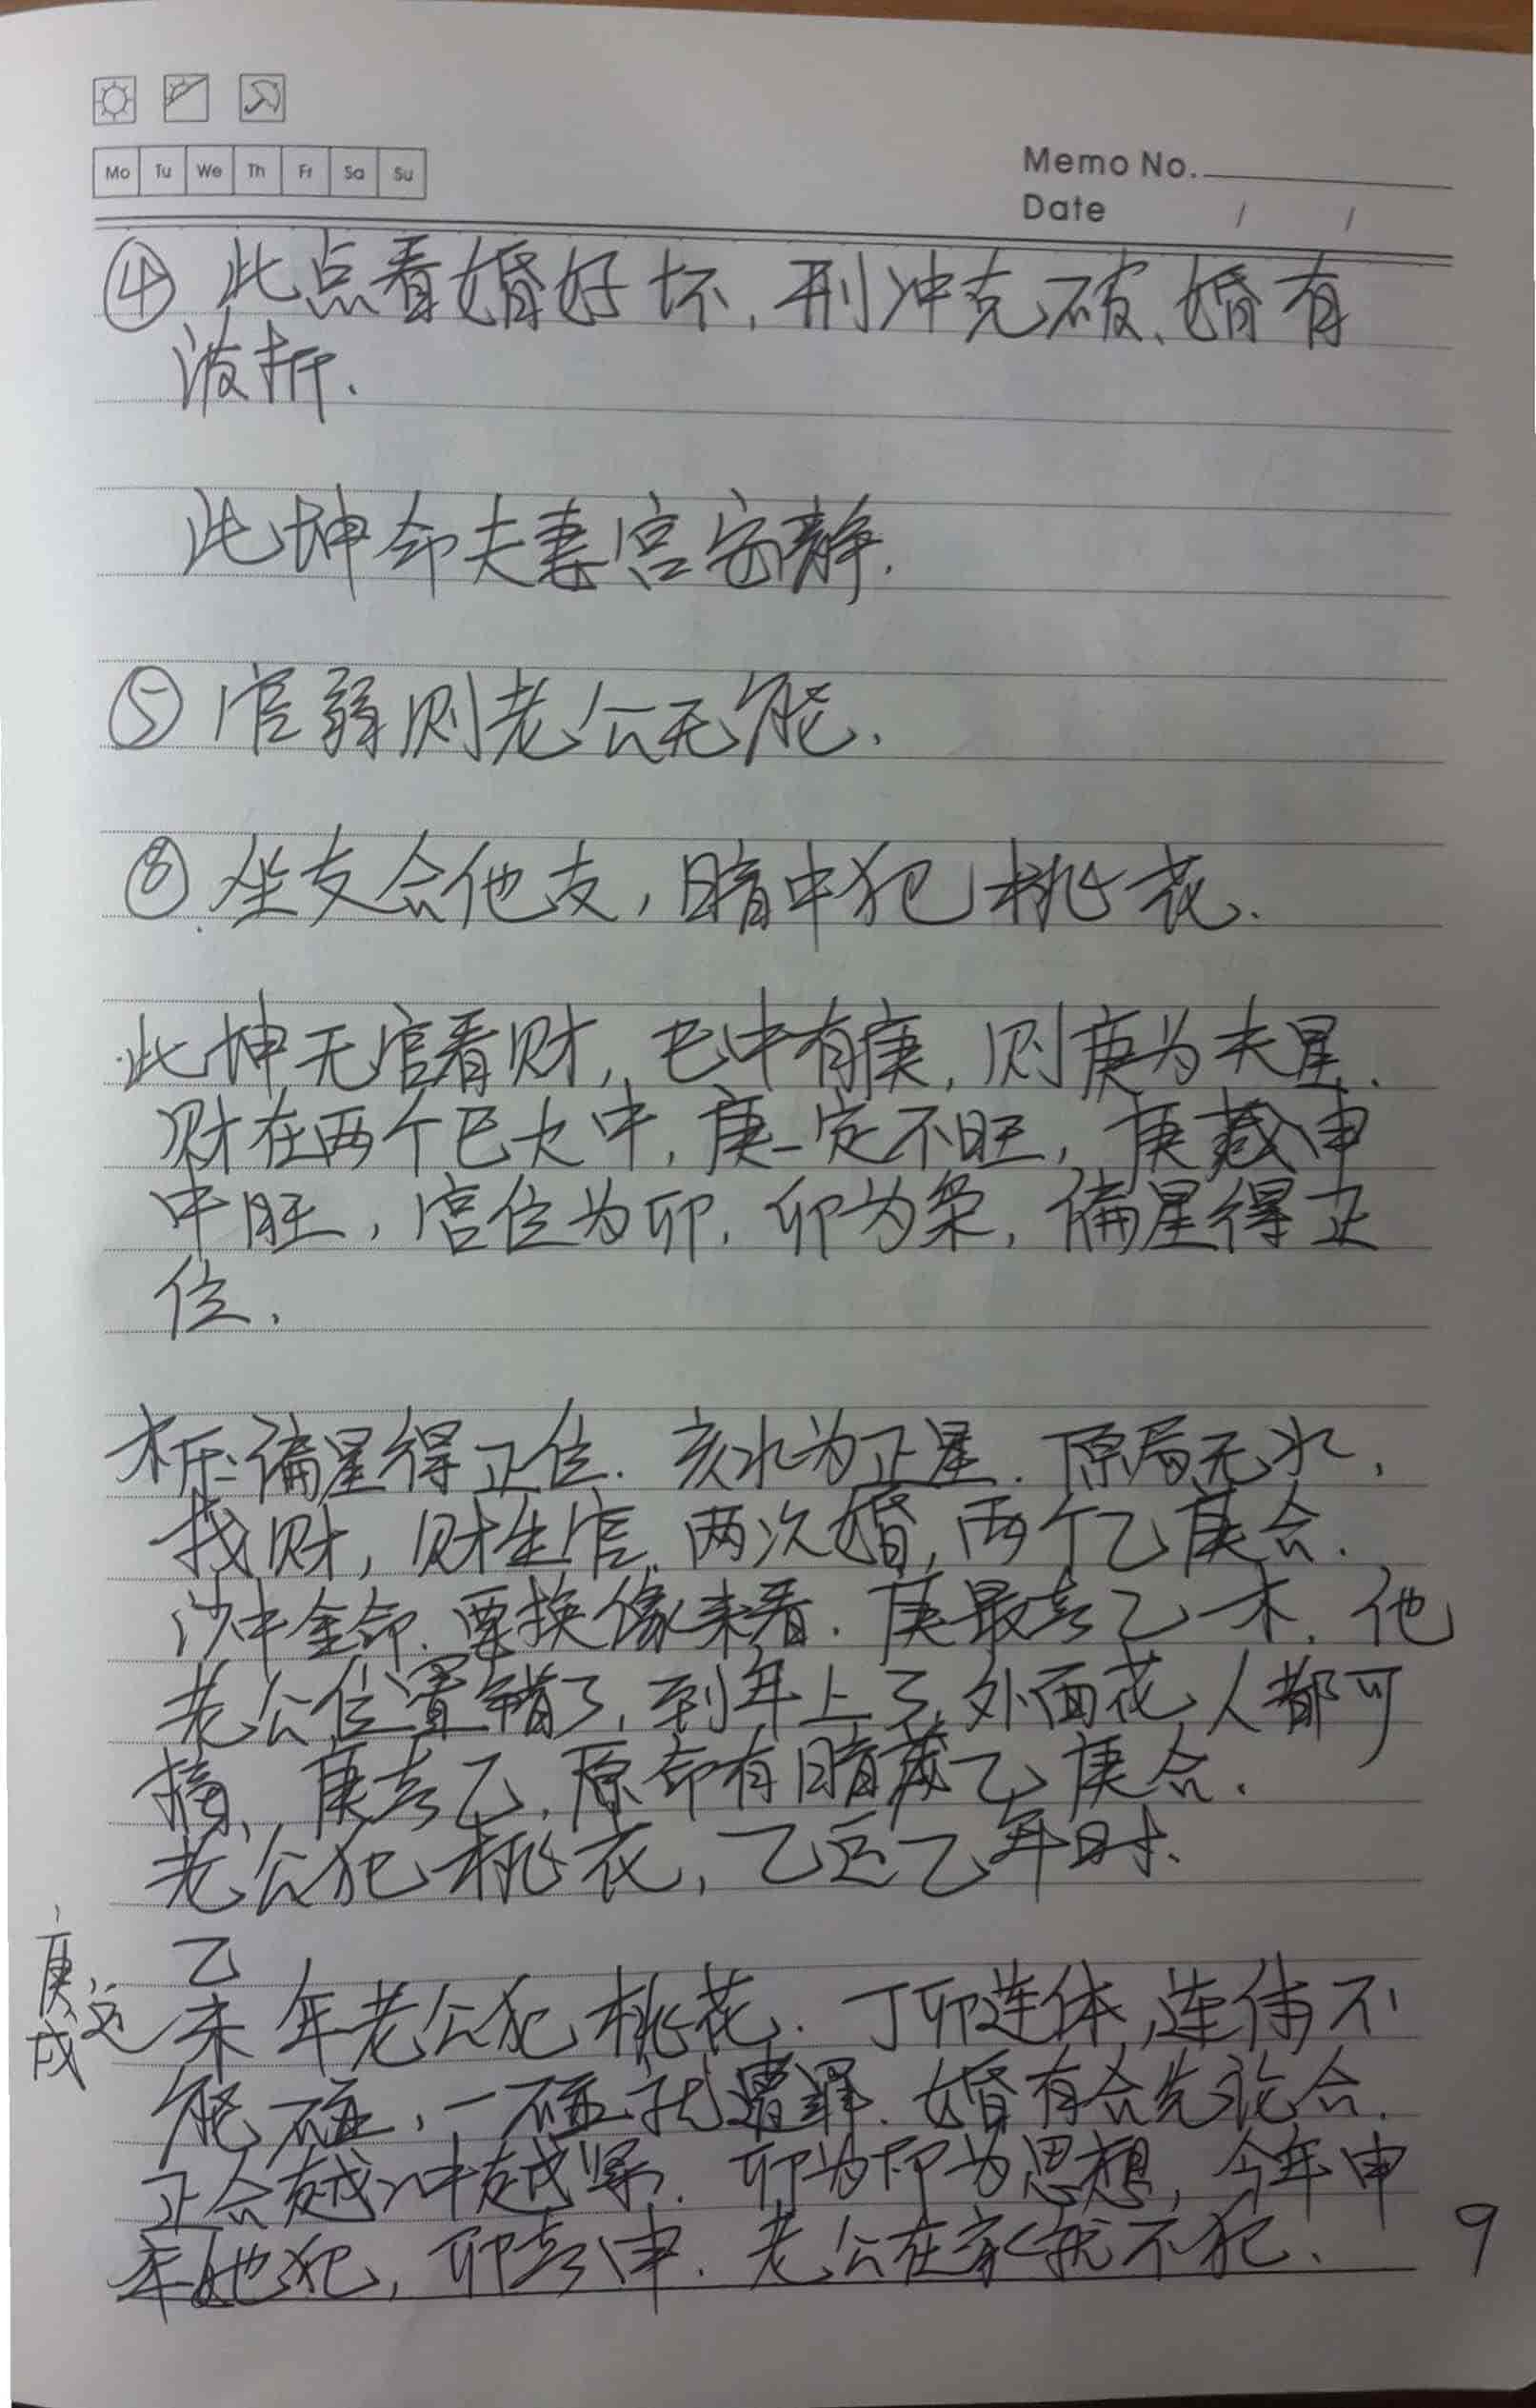 Mo Tu We Th Fr Sa Su
Memo No.
Date / /
④ 此点看婚好坏,刑冲克破、婚有
波折.
此坤命夫妻宫安静.
⑤ 官弱则老公无能.
⑧ 坐支合他支,暗中犯桃花.
此坤无官看财,巳中有庚,则庚为夫星.
财在两个巳火中,庚一定不旺,庚藏申
中旺,宫位为卯.卯为枭,偏星得正
位.
偏星得正位.亥水为正星.原局无水,
找财,财生官.两次婚,两个乙庚合.
沙中金命.要换像来看.庚最喜乙木.他
老公位置错了,到年上了,外面花人都可
摘、庚喜乙,原命有暗藏乙庚合.
老公犯桃花,乙运乙年时.
庚戌运 乙未年老公犯桃花.丁卯连体,连体不
能碰,一碰就遭罪.婚有合先论合.
正合越冲越紧.卯为印为思想,今年申
年她犯,卯喜申.老公在家就不犯.
9